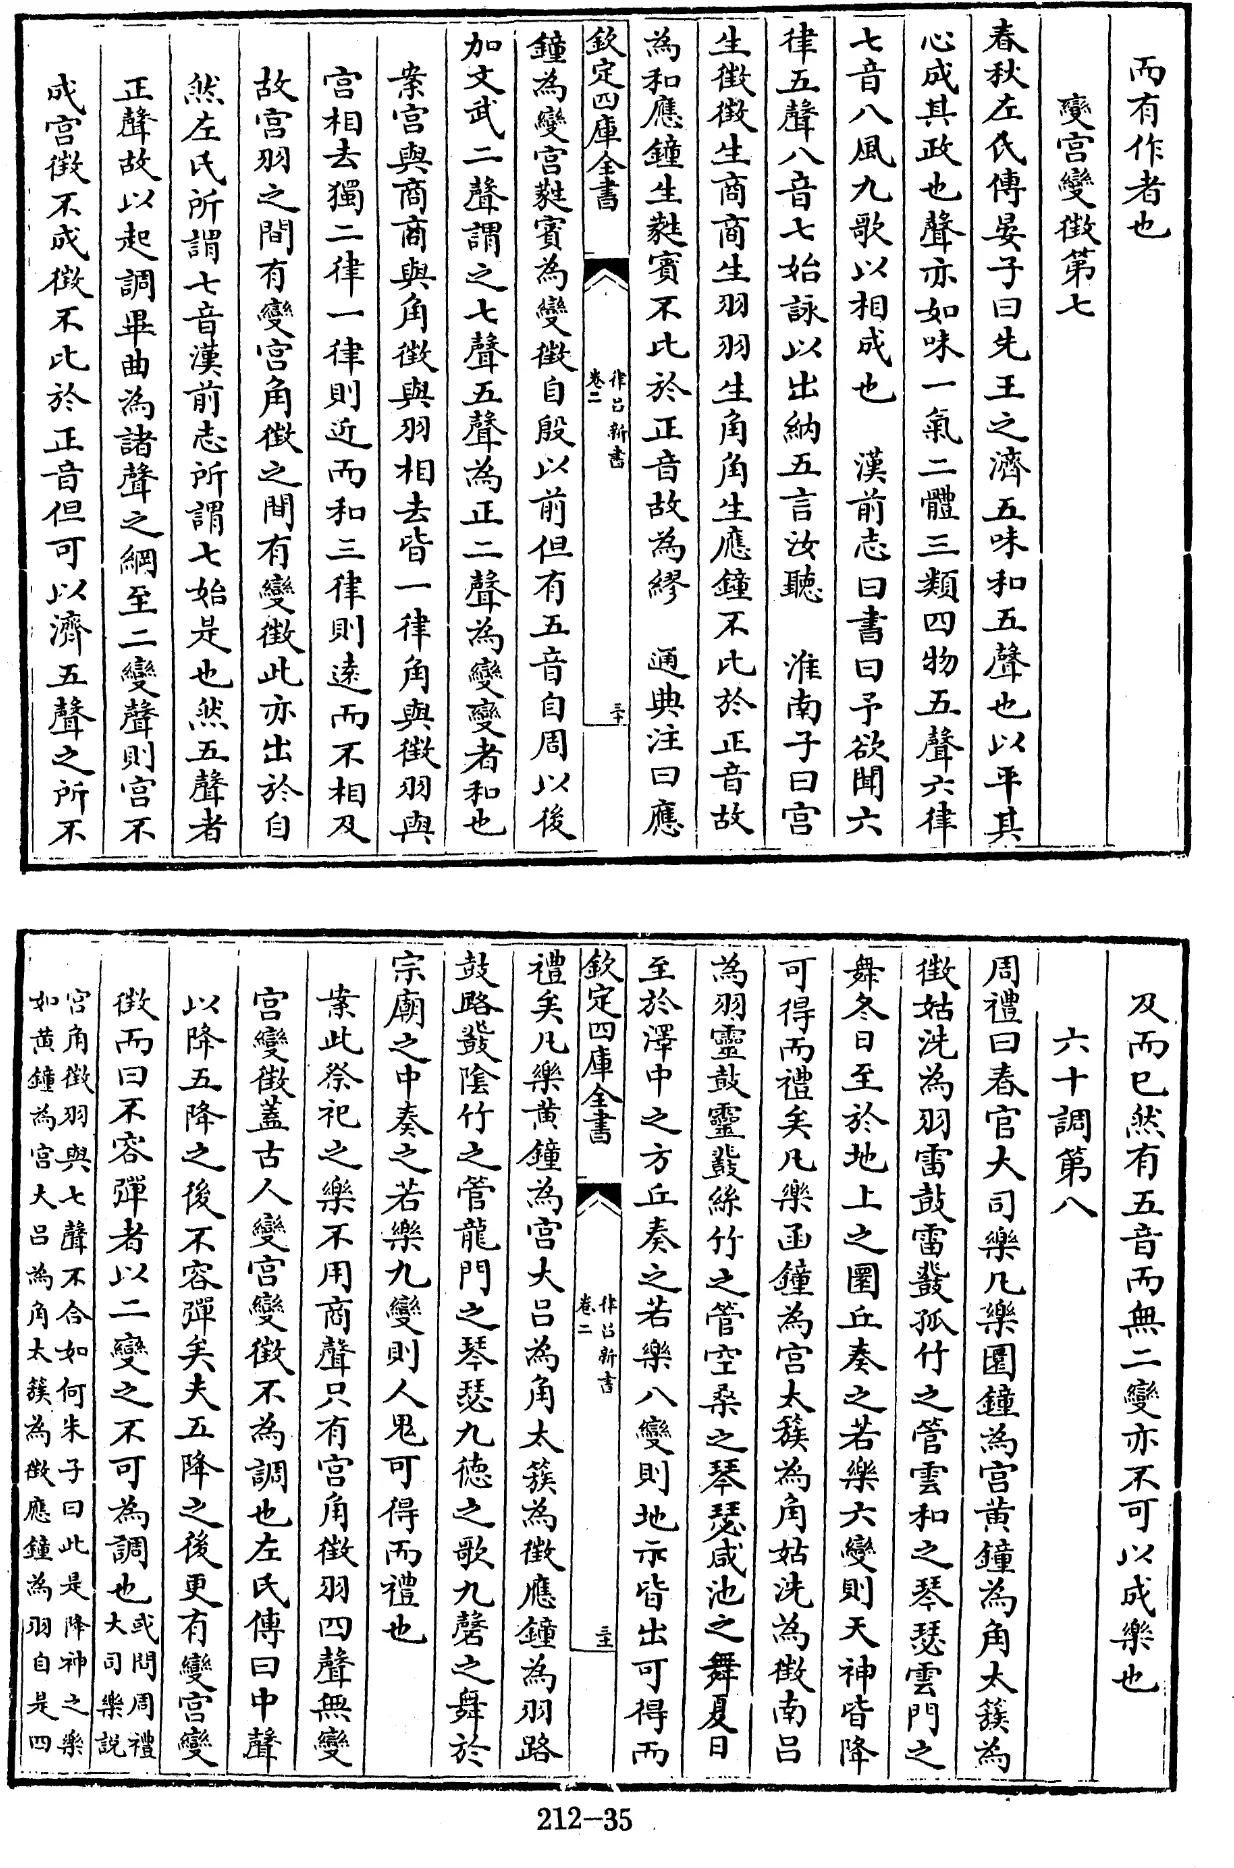 而有作者也
變宮變徵第七
春秋左氏傳晏子曰先王之濟五味和五聲也以平其
心成其政也聲亦如味一氣二體三類四物五聲六律
七音八風九歌以相成也 漢前志曰書曰予欲聞六
律五聲八音七始詠以出納五言汝聽 淮南子曰宮
生徵徵生商商生羽羽生角角生應鐘不比於正音故
為和應鐘生蕤賓不比於正音故為繆 通典注曰應
欽定四庫全書
律呂新書
卷二
三十
鐘為變宮蕤賓為變徵自殷以前但有五音自周以後
加文武二聲謂之七聲五聲為正二聲為變變者和也
案宮與商商與角徵與羽相去皆一律角與徵羽與
宮相去獨二律一律則近而和二律則逺而不相及
故宮羽之間有變宮角徵之間有變徵此亦出於自
然左氏所謂七音漢前志所謂七始是也然五聲者
正聲故以起調畢曲為諸聲之綱至二變聲則宮不
成宮徵不成徵不比於正音但可以濟五聲之所不
及而已然有五音而無二變亦不可以成樂也
六十調第八
周禮曰春官大司樂凡樂圜鐘為宮黃鐘為角太簇為
徵姑洗為羽雷鼓雷鼗孤竹之管雲和之琴瑟雲門之
舞冬日至於地上之圜丘奏之若樂六變則天神皆降
可得而禮矣凡樂函鐘為宮太簇為角姑洗為徵南呂
為羽靈鼓靈鼗絲竹之管空桑之琴瑟咸池之舞夏日
至於澤中之方丘奏之若樂八變則地示皆出可得而
欽定四庫全書
律呂新書
卷二
三十一
禮矣凡樂黃鐘為宮大呂為角太簇為徵應鐘為羽路
鼓路鼗陰竹之管龍門之琴瑟九德之歌九磬之舞於
宗廟之中奏之若樂九變則人鬼可得而禮也
案此祭祀之樂不用商聲只有宮角徵羽四聲無變
宮變徵蓋古人變宮變徵不為調也左氏傳曰中聲
以降五降之後不容彈矣夫五降之後更有變宮變
徵而曰不容彈者以二變之不可為調也 或問周禮
大司樂說
宮角徵羽與七聲不合如何朱子曰此是降神之樂
如黃鐘為宮大呂為角太簇為徵應鐘為羽自是四
212-35